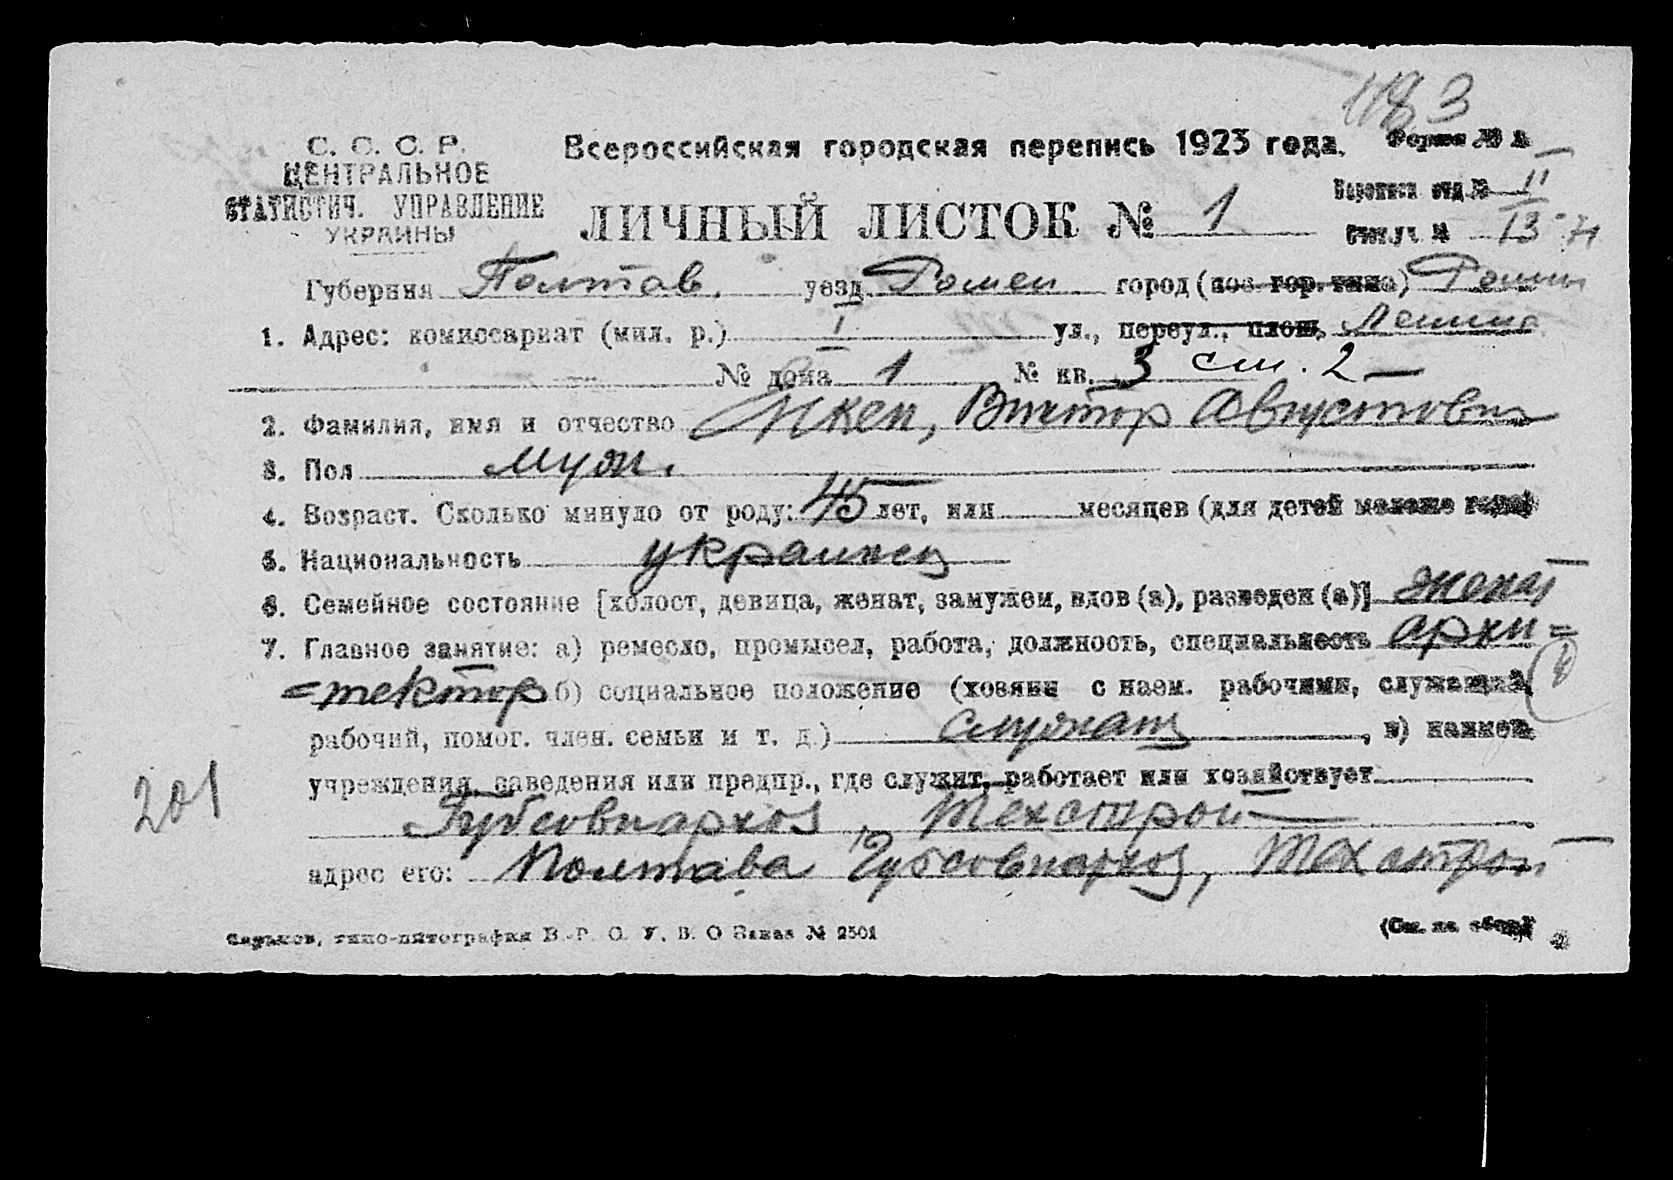 1183
С. С. С. Р.
ЦЕНТРАЛЬНОЕ
СТАТИСТИЧ. УПРАВЛЕНИЕ
УКРАИНЫ
Всероссийская городская перепись 1923 года.
Форма № А
ЛИЧНЫЙ ЛИСТОК № 1
Переписн отд № II
Счет.уч. № 13-
Губерния Полтав. уезд Ромен город (пос. гор. типа) Ромны
1. Адрес: комиссариат (мил. р.) I ул., переул., площ. Ленина
№ дома 1 № кв. 3 см. 2
2. Фамилия, имя и отчество Икен, Виктор Августович
3. Пол муж.
4. Возраст. Сколько минуло от роду: 45 лет, или месяцев (для детей моложе года)
5. Национальность украинец
6. Семейное состояние [холост, девица, женат, замужем, вдов (а), разведен (а)] женат
7. Главное занятие: а) ремесло, промысел, работа, должность, специальность архи=
=тектор б) социальное положение (хозяин с наем. рабочими, служащий,
рабочий, помог. член. семьи и т. д.) служащ , в) наимен.
учреждения, заведения или предпр., где служит, работает или хозяйствует
Губсовнархоз, Техстрой
адрес его: Полтава Губсовнархоз, Техстрой
201
Харьков, типо-литография В.-Р. О. У. В. О Заказ № 2501
(См. на обор.)